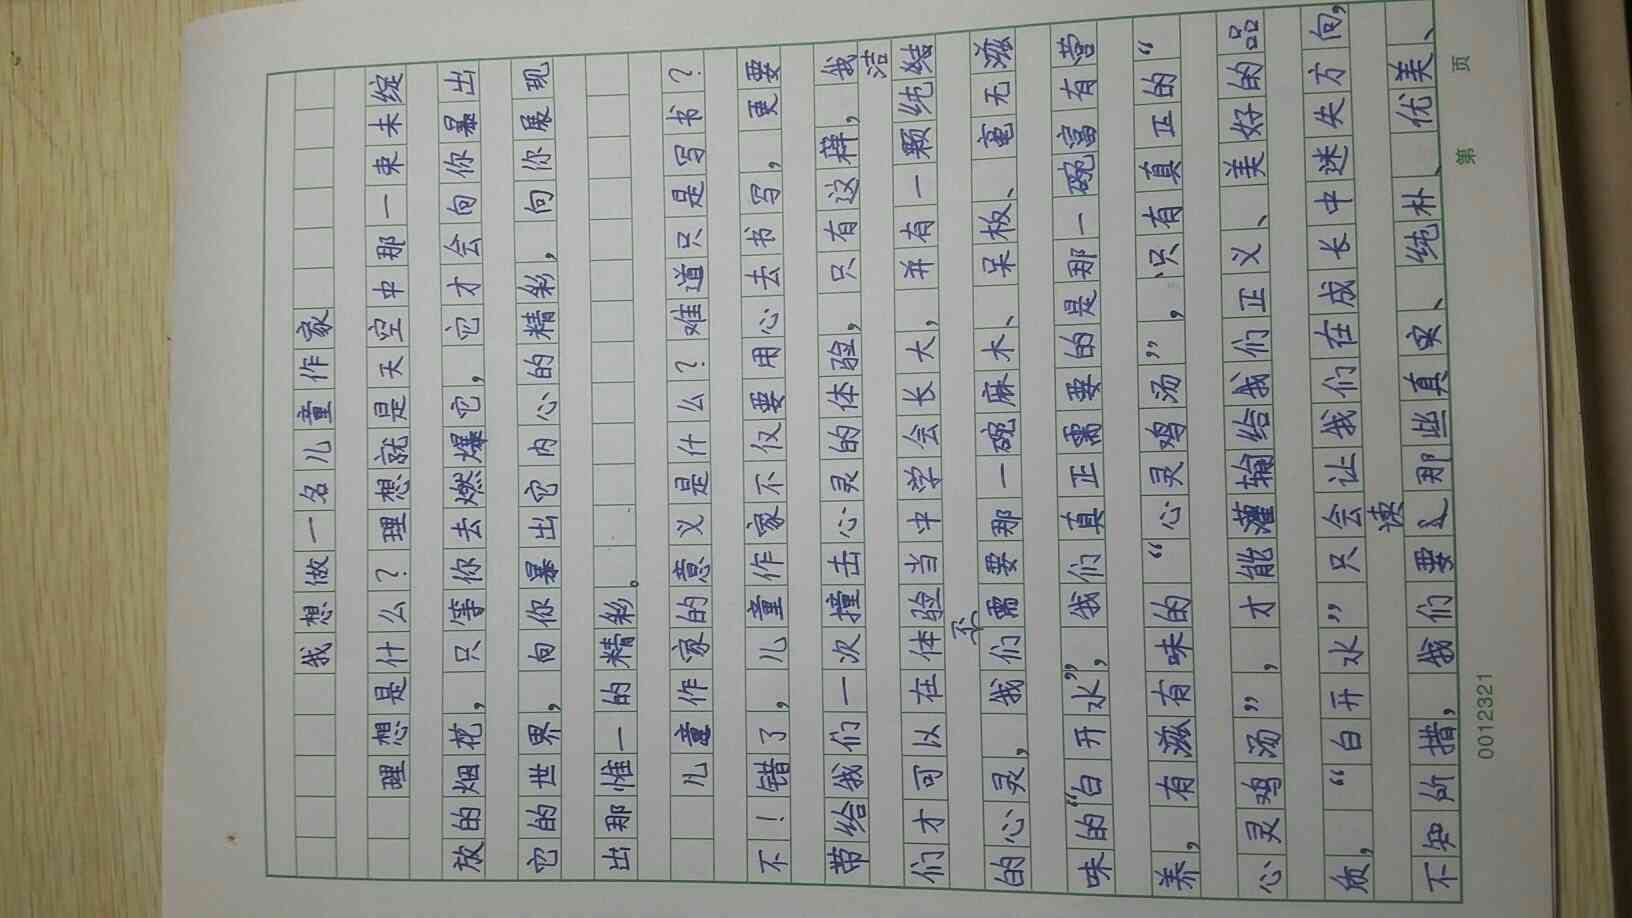 我想做一名儿童作家
理想是什么？理想就是天空中那一束未绽
放的烟花，只等你去燃爆它，它才会向你暴出
它的世界，向你暴出它内心的精彩，向你展现
出那惟一的精彩。
儿童作家的意义是什么？难道只是写书？
不！错了，儿童作家不仅要用心去书写，更要
带给我们一次撞击心灵的体验，只有这样，我
们才可以在体验当中学会长大，并有一颗纯洁
的心灵，我们不需要那一碗麻木、呆板、毫无滋
味的“白开水”，我们真正需要的是那一碗富有营
养，有滋有味的“心灵鸡汤”，只有真正的“
心灵鸡汤”，才能灌输给我们正义、美好的品
质，“白开水”只会让我们在成长中迷失方向，
不知所措，我们要读那些真实、纯朴、优美、
0012321
第 页